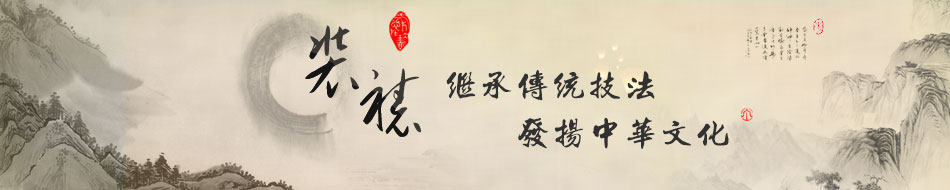 装裱
继承傳统技法
發揚中華文化